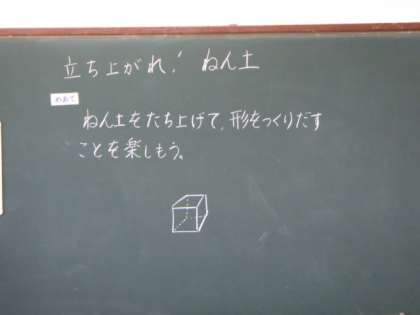 立ち上がれ!ねん土
めあて
ねん土をたち上げて、形をつくりだす
ことを楽しもう。